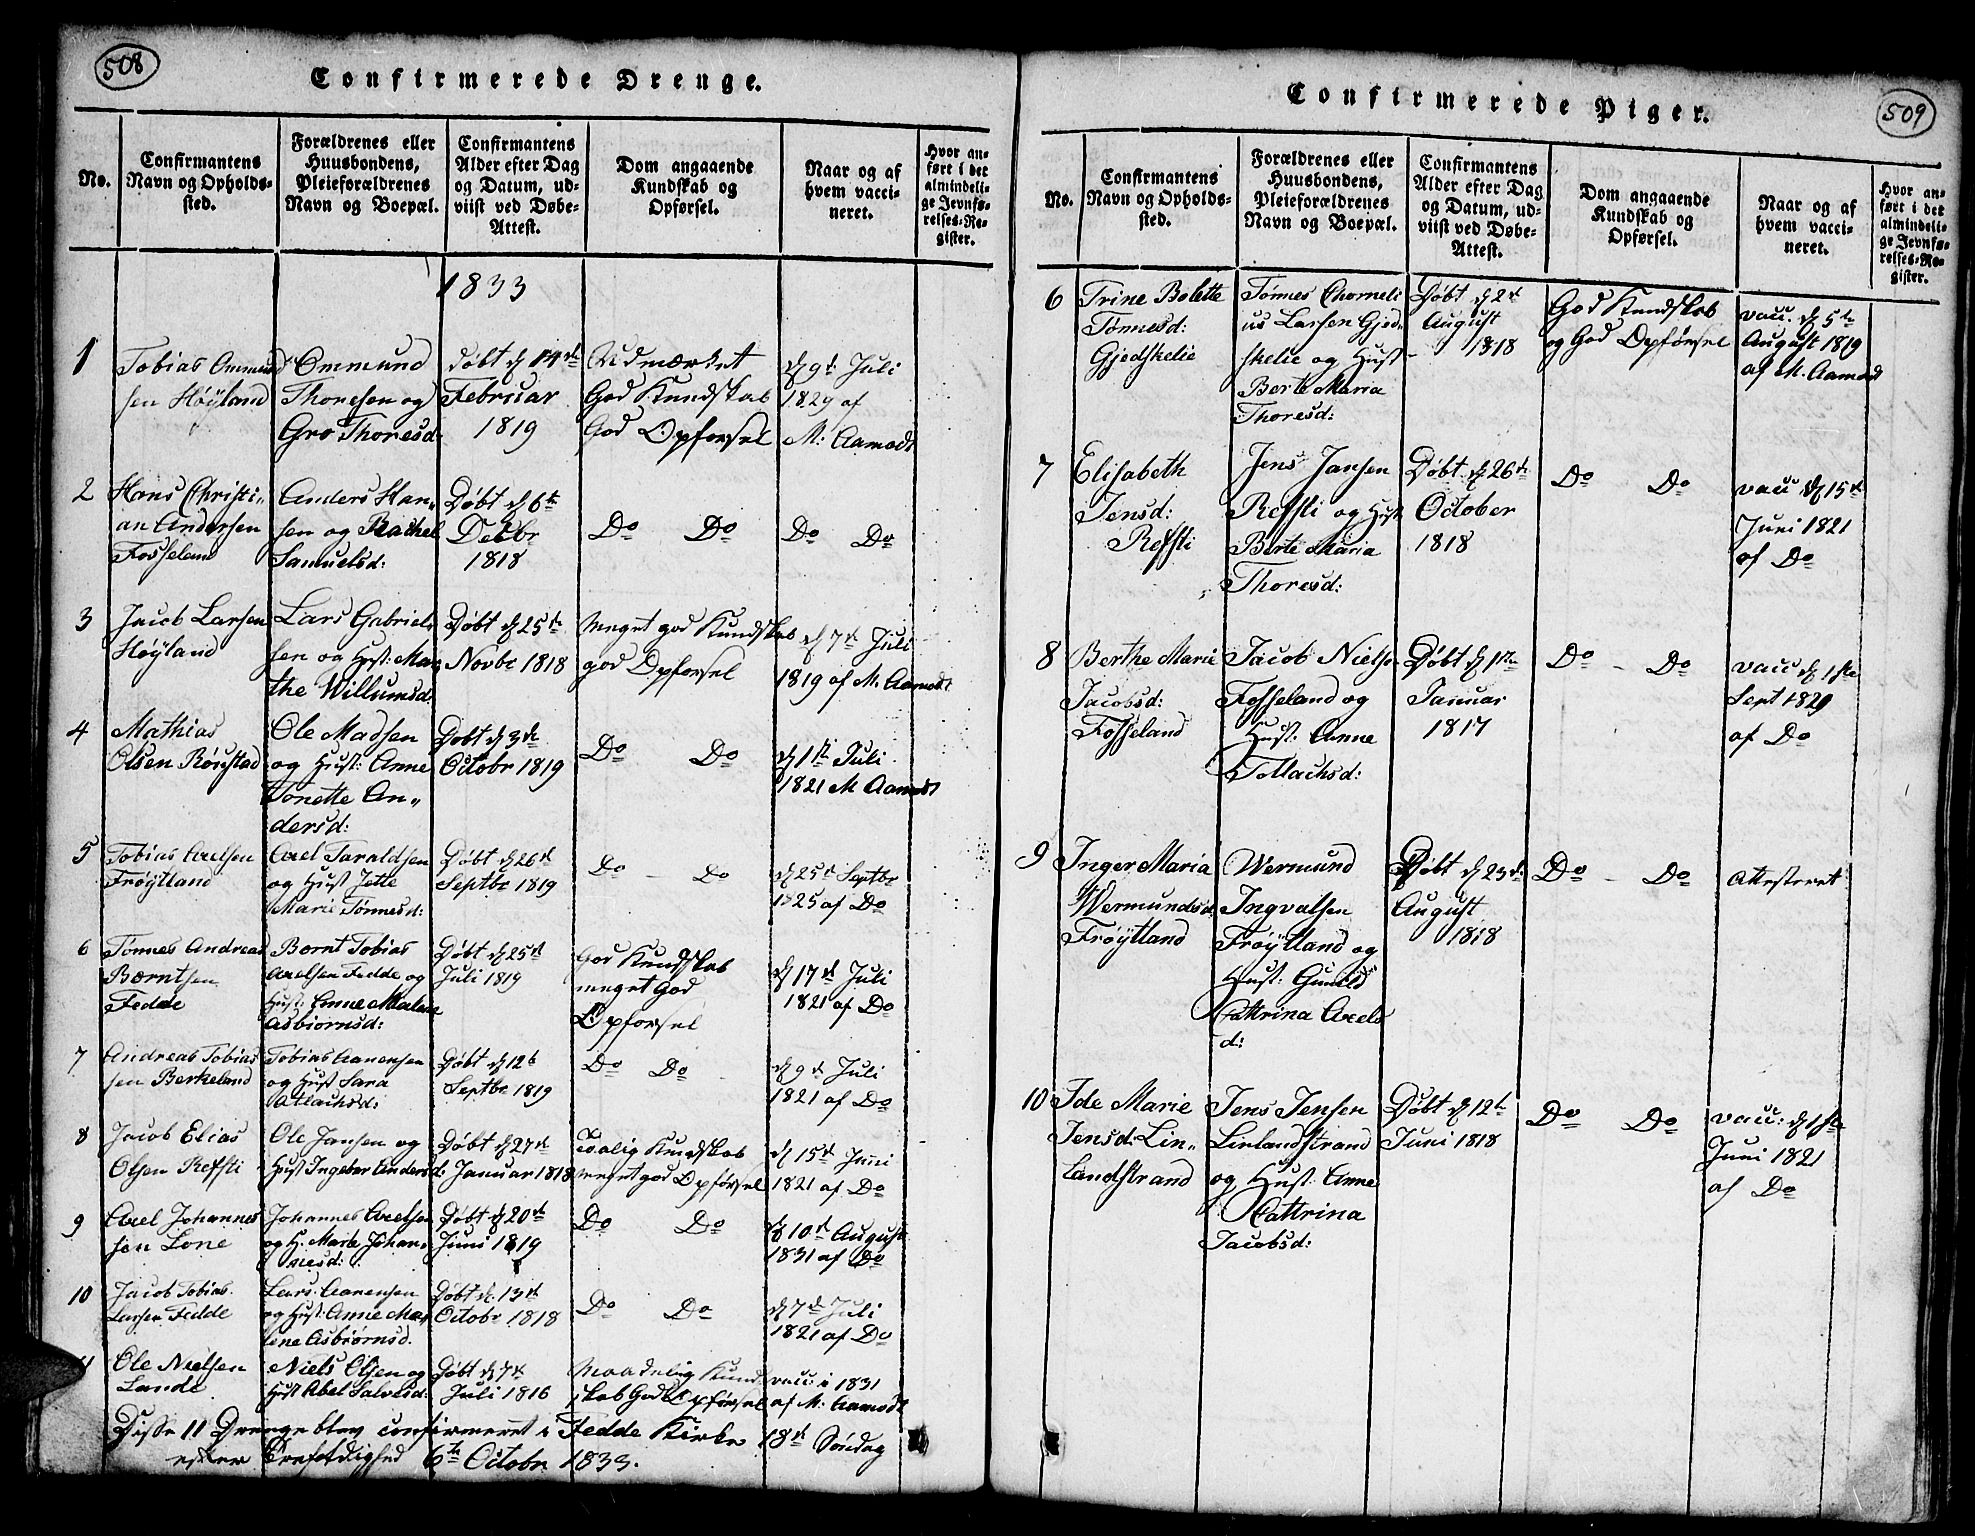 508
Confirmerede Drenge.
No.
Confirmantens
Navn og Opholds-
sted.
Forældrenes eller
Huusbondens,
Pleieforældrenes
Navn og Boepæl.
Confirmantens
Alder efter Dag
og Datum, ud-
viist ved Døbe-
Attest.
Dom angaaende
Kundskab og
Opførsel.
Naar og af
hvem vacci-
neret.
Hvor an-
ført i det
almindeli-
ge Jevnfø-
relses-Re-
gister.
1833
1
Tobias Ommund
sen Høyland
Ommund
Thoresen og
Gro Thoresd:
døbt d 14de
Februar
1819
Udmærket
God Kundskab
God Opførsel
d 9d Juli
1829 af
M: Aamodt
2
Hans Christi„
an Andersen
Fosseland
Anders Han„
sen og Rachel
Samuelsd:
Døbt d 6te
Decbr
1818
Do Do
Do Do
3
Jacob Larsen
Høyland
Lars Gabriels
sen og Hust: Mar
the Willumsd
Døbt d 25de
Novbr 1818
Meget god Kundskab
god Opførsel
d 7d Juli
1819 af M. Aamodt
4
Mathias
Olsen Røiestad
Ole Madsen
og Hust: Anne
Tonette An„
dersd:
Døbt d 3de
Octobr 1819
Do Do
d 1ste Juli
1821 M Aamodt
5
Tobias Axelsen
Frøytland
Axel Taraldsen
og Hust Jette
Marie Tønnesd:
Døbt d 26d
Septbr 1819
Do - Do
d 25d Septbr
1825 af Do
6
Tønnes Andreas
Bærntsen
Fedde
Bærnt Tobias
Axelsen Fedde og
Hust: Anne Malene
Asbiørnsd:
Døbt d 25d
Juli 1819
God Kundskab
meget God
Opførsel
d 17d Juli
1821 af Do
7
Andreas Tobias
sen Berkeland
Tobias Aanensen
og Hust Sara
Atlachsd:
Døbt d 12t
Septbr 1819
Do Do
d 9d Juli
1821 af Do
8
Jacob Elias
Olsen Refsti
Ole Jansen og
Hust Ingebor Andersd:
Døbt d 27d
Januar 1818
Taalig Kundskab
meget god Opførsel
d 15d Juni
1821 af Do
9
Axel Johannes
sen Lone
Johannes Axelsen
og H. Marte Johan„
nesd:
Døbt d 20d
Juni 1819
Do Do
d 10d August
1831 af Do
10
Jacob Tobias
Larsen Fedde
Lars Aanensen
og Hust: Anne Ma„
lene Asbiørnsd.
Døbt d 13d
Octobr 1818
Do Do
d 7d Juli
1821 af Do
11
Ole Nielsen
Lande
Niels Olsen og
Hust Abel Salvesd:
Døbt d 7d
Juli 1816
Maadelig Kund„
skab God Opførsel
vacc i 1831
af M. Aamodt
Disse 11 Drenge blev confirmeret i Fedde Kirke 18d Søndag
efter Trefoldighed 6te Octobr 1833.
509
Confirmerede Piger.
No.
Confirmantens
Navn og Opholds-
sted.
Forældrenes eller
Huusbondens,
Pleieforældrenes
Navn og Boepæl.
Confirmantens
Alder efter Dag
og Datum, ud-
viist ved Døbe-
Attest.
Dom angaaende
Kundskab og
Opførsel.
Naar og af
hvem vacci-
neret.
Hvor an-
ført i det
almindeli-
ge Jevnfø-
relses-Re-
gister.
6
Trine Bolette
Tønnesd:
Gjedskelie
Tønnes Chorneli
us Larsen Gjed„
skelie og Hust
Berte Maria
Thoresd:
Døbt d 2d
August
1818
God Kundskab
og God Opførsel
vacc: d 5te
August 1819
af M. Aamodt
7
Elisabeth
Jensd:
Refsti
Jens Jansen
Refsti og Hust
Berte Maria
Thoresd:
Døbt: d 26de
October
1818
Do Do
vacc d 15d
Juni 1821
af Do
8
Berthe Marie
Jacobsd:
Fosseland
Jacob Nielse
Fosseland og
Hust: Anne
Tollachsd:
Døbt d 1ste
Januar
1817
Do - Do
vacc d 1ste
Sept 1829
af Do
9
Inger Maria
Wermundsd
Frøytland
Wermund
Ingvalsen
Frøytland og
Hust: Gunild
Cattrina Axels
d:
Døbt d 23d
August
1818
Do - Do
Attesteret
10
Ide Marie
Jensd: Lin„
landstrand
Jens Jensen
Linlandstrand
og Hust: Anne
Cattrina
Jacobsd:
Døbt d 12te
Juni 1818
Do Do
vacc: d 1ste
Juni 1821
af Do